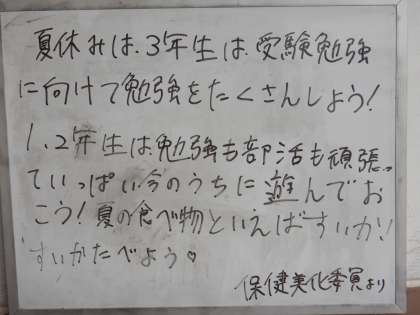 夏休みは、3年生は受験勉強
に向けて勉強をたくさんしよう!
1、2年生は勉強も部活も頑張っ
ていっぱい今のうちに遊んでお
こう!夏の食べ物といえばすいか!
すいかたべよう♡
保健美化委員より